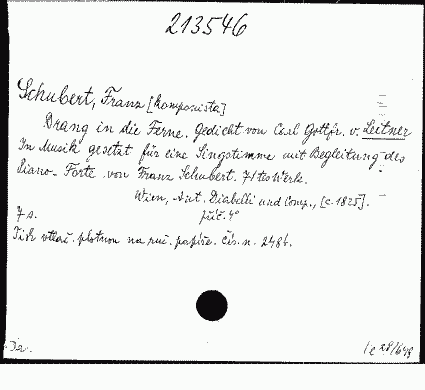 213546
Schubert, Franz [komponista]
Drang in die Ferne. Gedicht von Carl Gottfr. v. Leitner
In Musik gesetzt für eine Singstimme mit Begleitung des
Piano-Forte von Franz Schubert. 71tes Werk.
Wien, Ant. Diabelli und Comp., [c. 1825].
7 s. příč. 4°
Tisk vtlač. plotnou na ruč. papíře. Čís. n. 2486.
28/649